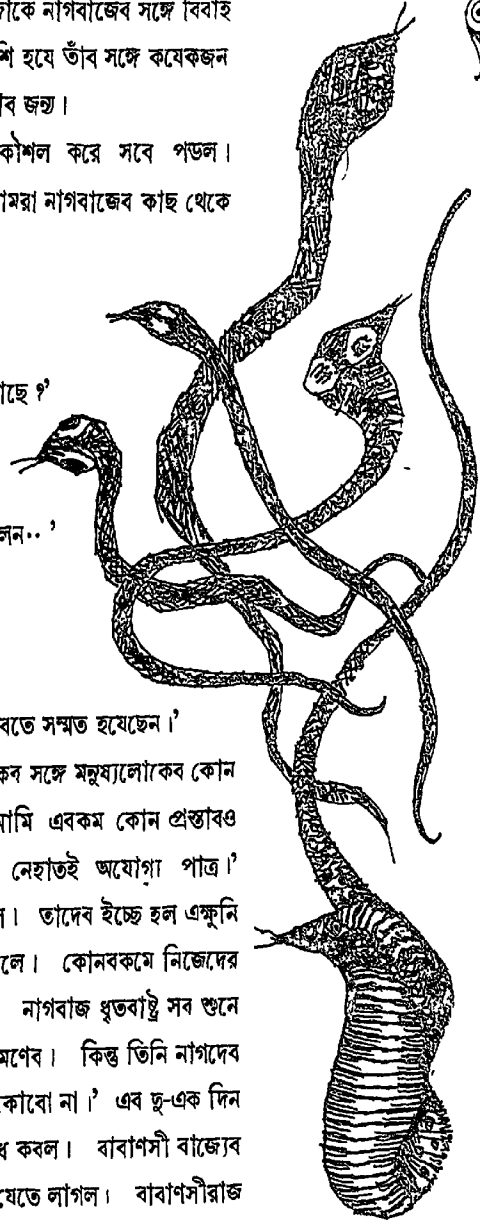 নাগবাজেব সঙ্গে বিবাহ
শি হযে তাঁব সঙ্গে কযেকজন
ব জন্য।
কৌশল করে সবে পডল।
ামরা নাগবাজেব কাছ থেকে
াছে ?’
লন·· ’
বতে সম্মত হযেছেন।’
কব সঙ্গে মনুষ্যলোকেব কোন
আমি এবকম কোন প্রস্তাবও
নেহাতই অযোগ্য পাত্র।’
ল। তাদেব ইচ্ছে হল এক্ষুনি
লে। কোনবকমে নিজেদের
নাগবাজ ধৃতবাষ্ট্র সব শুনে
মণেব। কিন্তু তিনি নাগদেব
কোবো না।’ এব দু-এক দিন
ধ কবল। বাবাণসী বাজ্যেব
যেতে লাগল। বাবাণসীরাজ